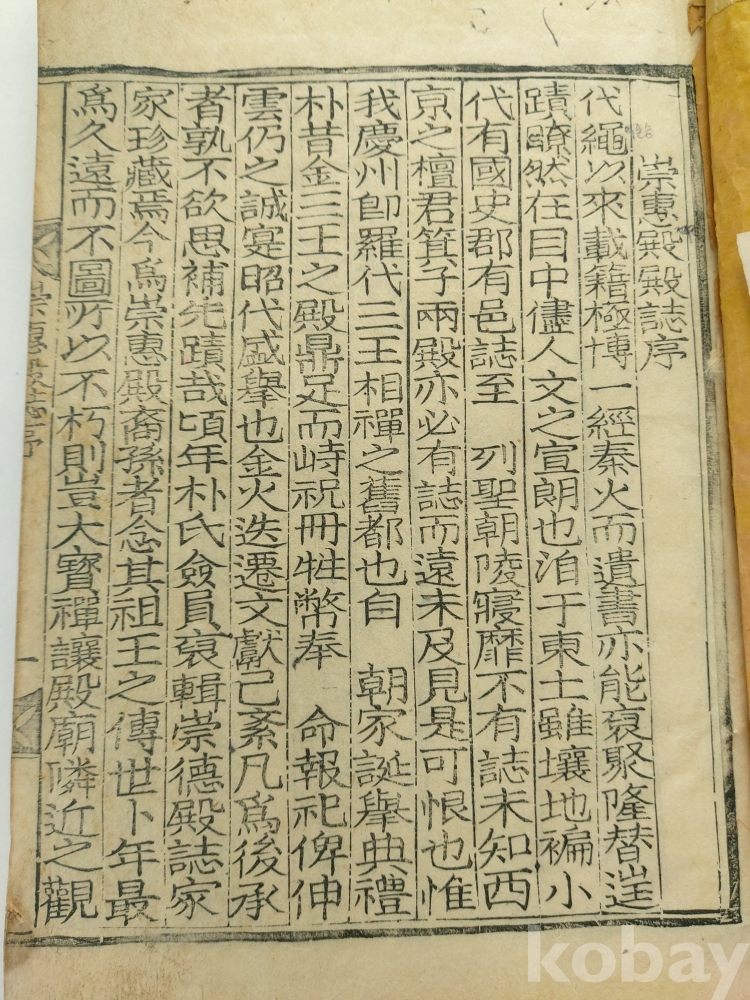 崇惠殿殿誌序
代繩以來載籍極博一經秦火而遺書亦能裒聚隆替逞
蹟瞭然在目中儘人文之宣朗也洎于東土雖壤地褊小
代有國史郡有邑誌至 列聖朝陵寢靡不有誌未知西
京之檀君箕子兩殿亦必有誌而遠未及見是可恨也惟
我慶州卽羅代三王相禪之舊都也自 朝家誕擧典禮
朴昔金三王之殿鼎足而峙祝冊牲幣奉 命報祀俾伸
雲仍之誠寔昭代盛擧也金火迭遷文獻已紊凡爲後承
者孰不欲思補先蹟哉頃年朴氏僉員裒輯崇德殿誌家
家珍藏焉今爲崇惠殿裔孫者念其祖王之傳世卜年最
爲久遠而不圖所以不朽則豈大寶禪讓殿廟隣近之觀
崇惠殿誌序
一
kobay